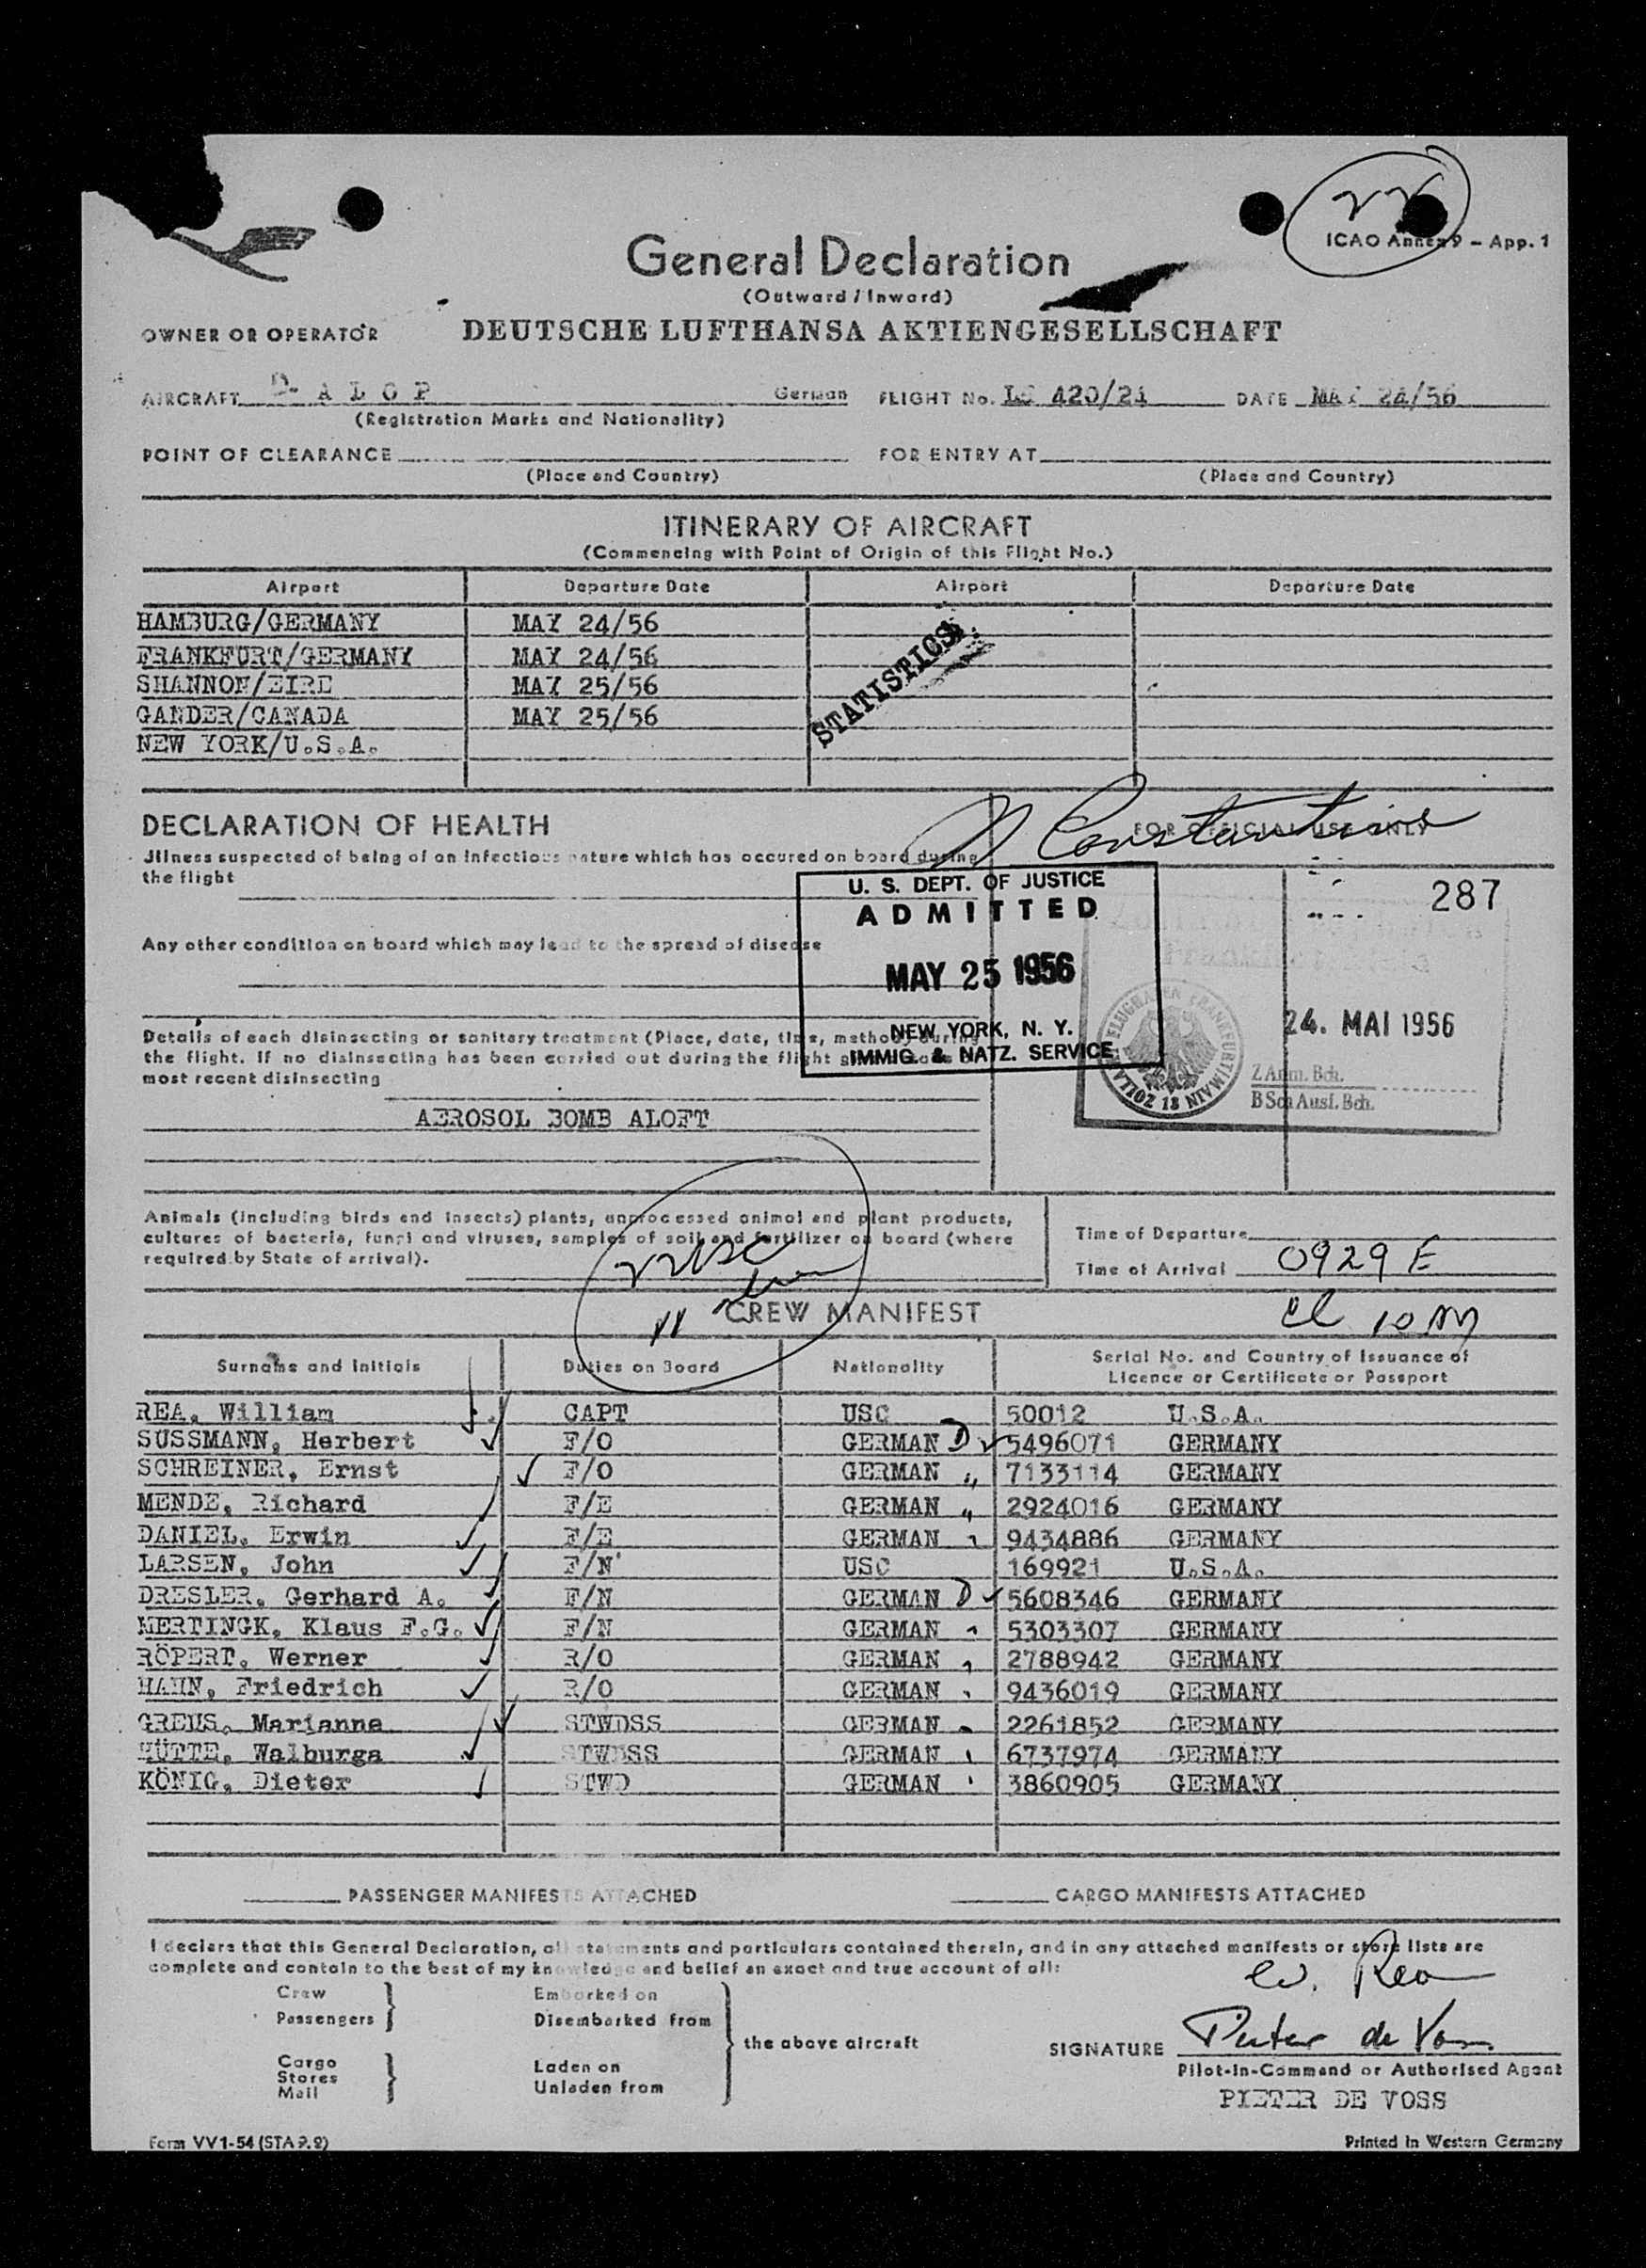 ICAO Annex 9 – App. 1
General Declaration
(Outward / Inward)
OWNER OR OPERATOR DEUTSCHE LUFTHANSA AKTIENGESELLSCHAFT
AIRCRAFT D- A L O P German FLIGHT No. LH 420/21 DATE MAY 24/56
(Registration Marks and Nationality)
POINT OF CLEARANCE FOR ENTRY AT
(Place and Country) (Place and Country)
ITINERARY OF AIRCRAFT
(Commencing with Point of Origin of this Flight No.)
Airport Departure Date Airport Departure Date
HAMBURG/GERMANY MAY 24/56
FRANKFURT/GERMANY MAY 24/56
SHANNON/EIRE MAY 25/56
GANDER/CANADA MAY 25/56
NEW YORK/U.S.A.
STATISTICS
DECLARATION OF HEALTH
FOR OFFICIAL USE ONLY
Constantine
Jllness suspected of being of an infectious nature which has occured on board during
the flight
U. S. DEPT. OF JUSTICE
ADMITTED
MAY 25 1956
NEW YORK, N. Y.
IMMIG. & NATZ. SERVICE
287
Any other condition on board which may lead to the spread of disease
24. MAI 1956
Z Anm. Bch.
B Sch Ausf. Bch.
Details of each disinsecting or sanitary treatment (Place, date, time, method) during
the flight. If no disinsecting has been carried out during the flight
most recent disinsecting
AEROSOL BOMB ALOFT
Animals (including birds and insects) plants, unprocessed animal and plant products,
cultures of bacteria, fungi and viruses, samples of soil and fertilizer on board (where
required by State of arrival).
Time of Departure
Time of Arrival 0929 E
CREW MANIFEST
Surname and Initials Duties on Board Nationality Serial No. and Country of Issuance of
Licence or Certificate or Passport
REA, William CAPT USC 50012 U.S.A.
SUSSMANN, Herbert F/O GERMAN D 5496071 GERMANY
SCHREINER, Ernst F/O GERMAN " 7133114 GERMANY
MENDE, Richard F/E GERMAN " 2924016 GERMANY
DANIEL, Erwin F/E GERMAN " 9434886 GERMANY
LARSEN, John F/N USC 169921 U.S.A.
DRESLER, Gerhard A. F/N GERMAN D 5608346 GERMANY
MERTINGK, Klaus F.G. F/N GERMAN " 5303307 GERMANY
RÖPERT, Werner R/O GERMAN " 2788942 GERMANY
HAHN, Friedrich R/O GERMAN " 9436019 GERMANY
GREUS, Marianne STWDSS GERMAN " 2261852 GERMANY
HÜTTE, Walburga STWDSS GERMAN " 6737974 GERMANY
KÖNIG, Dieter STWD GERMAN " 3860905 GERMANY
PASSENGER MANIFESTS ATTACHED CARGO MANIFESTS ATTACHED
I declare that this General Declaration, all statements and particulars contained therein, and in any attached manifests or store lists are
complete and contain to the best of my knowledge and belief an exact and true account of all:
W. Rea
Crew Embarked on
Passengers Disembarked from
the above aircraft
Cargo Laden on
Stores
Mail Unladen from
SIGNATURE Pieter de Voss
Pilot-in-Command or Authorised Agent
PIETER DE VOSS
Form VV1-54 (STA 9.2) Printed in Western Germany